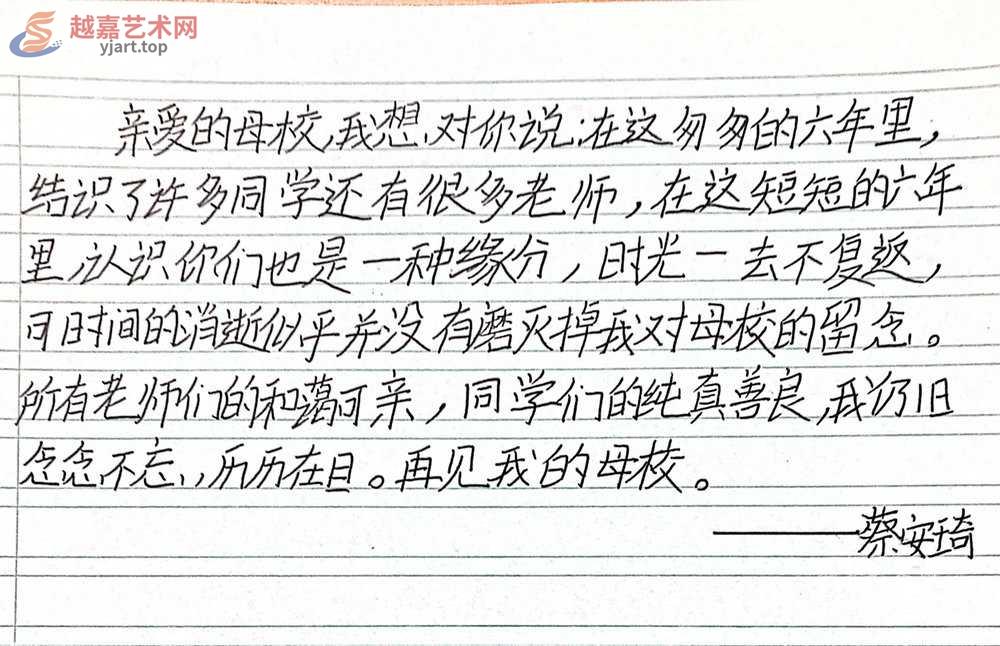 越嘉艺术网
yjart.top
亲爱的母校,我想对你说:在这匆匆的六年里,
结识了许多同学还有很多老师,在这短短的六年
里,认识你们也是一种缘分,时光一去不复返,
可时间的消逝似乎并没有磨灭掉我对母校的留念。
所有老师们的和蔼可亲,同学们的纯真善良,我仍旧
念念不忘,历历在目。再见我的母校。
——蔡安琦